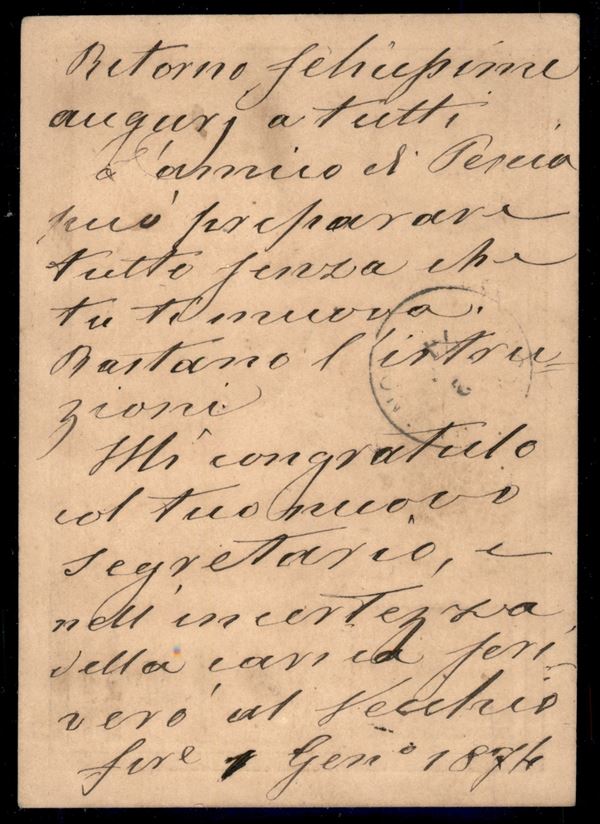 Ritorno felicissimi
augurj a tutti
L'amico di Pescia
può preparare
tutto senza che
tu ti muova.
Bastano l'istru=
zioni
Mi congratulo
col tuo nuovo
segretario, e
nell'incertezza
della carica scri
verò al Vecchio
1 Gen.o 1874